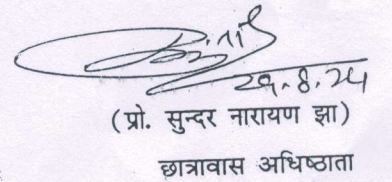 29.8.24
(प्रो. सुन्दर नारायण झा)
छात्रावास अधिष्ठाता